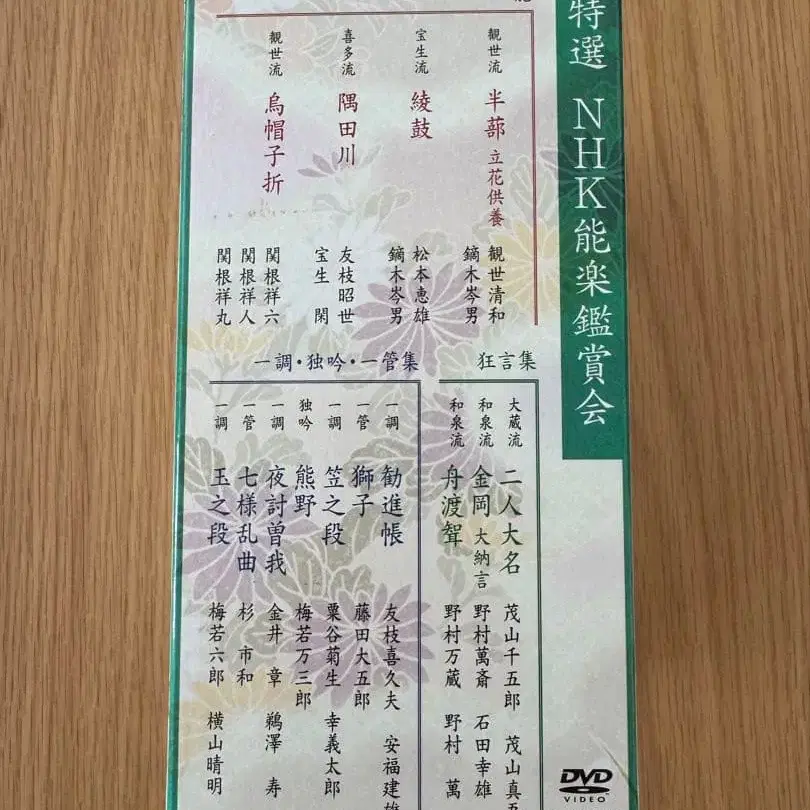 特選 NHK能楽鑑賞会
能
観世流 半蔀 立花供養 観世清和 鏑木岑男
宝生流 綾鼓 松本恵雄 鏑木岑男
喜多流 隅田川 友枝昭世 宝生閑
観世流 烏帽子折 関根祥六 関根祥人 関根祥丸
狂言集
大蔵流 二人大名 茂山千五郎 茂山真
和泉流 金岡 大納言 野村萬斎 石田幸雄
和泉流 舟渡聟 野村万蔵 野村萬
一調・独吟・一管集
一調 勧進帳 友枝喜久夫 安福建雄
一管 獅子 藤田大五郎
一調 笠之段 粟谷菊生 幸義太郎
独吟 熊野 梅若万三郎
一調 夜討曽我 金井章 鵜澤寿
一管 七様乱曲 杉市和
一調 玉之段 梅若六郎 横山晴明
DVD
VIDEO